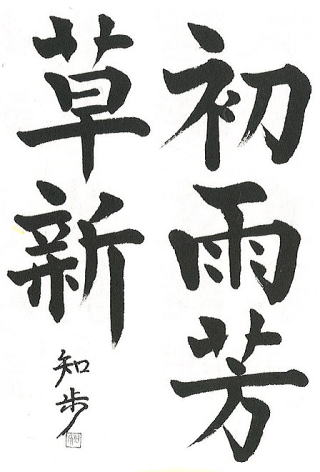 初雨芳
草新
知歩